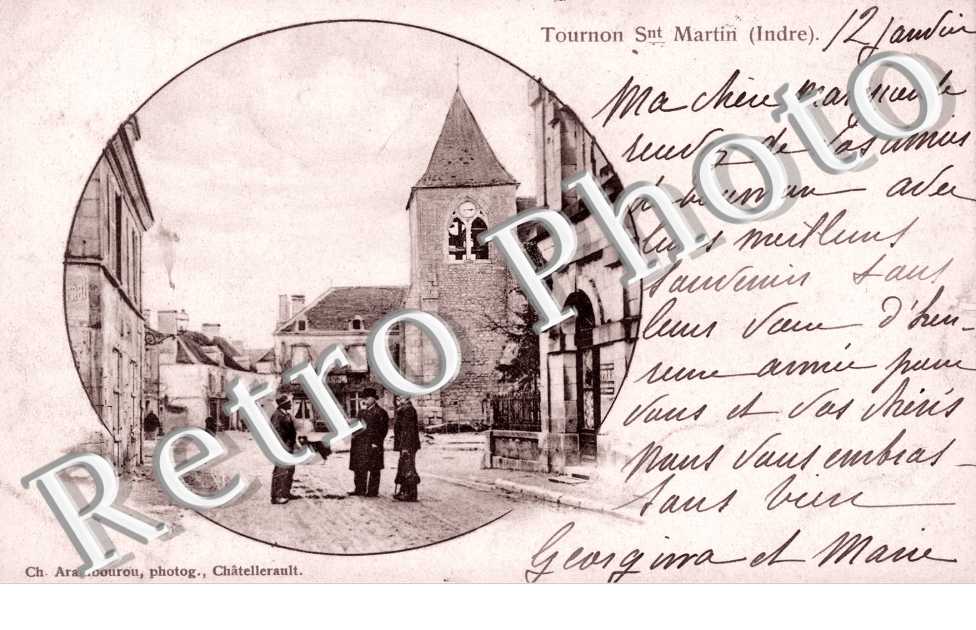 Tournon Snt Martin (Indre). 12 Janvier
Ma chère
rendez de vos amis
avec
leurs meilleurs
souvenir sans
leurs vœu d'heu-
reuse année pour
vous et vos chéris
nous vous embras-
sons bien
Georgina et Marie
Ch. Arambourou, photog., Châtellerault.
Retro Photo